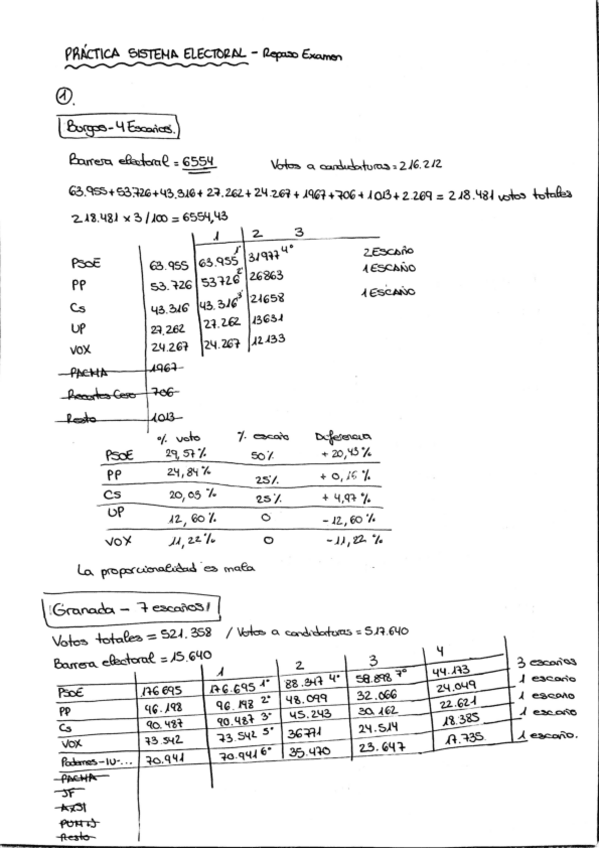 PRÁCTICA SISTEMA ELECTORAL - Repaso Examen
①.
Burgos - 4 Escaños.
Barrera electoral = 6554 Votos a candidaturas = 216.212
63.955+53.726+43.316+27.262+24.267+1967+706+1013+2.269 = 218.481 votos totales
218.481 x 3/100 = 6554,43
1 2 3
PSOE 63.955 63.955 1º 31977 4º 2 ESCAÑO
PP 53.726 53726 2º 26863 1 ESCAÑO
Cs 43.316 43.316 3º 21658 1 ESCAÑO
UP 27.262 27.262 13631
VOX 24.267 24.267 12.133
PACMA 1967
Recortes Cero 706
Resto 1013
% voto % escaño Diferencia
PSOE 29,57% 50% + 20,43%
PP 24,84% 25% + 0,16%
CS 20,03% 25% + 4,97%
UP 12,60% 0 - 12,60%
VOX 11,22% 0 - 11,22%
La proporcionalidad es mala
Granada - 7 escaños
Votos totales = 521.358 / Votos a candidaturas = 517.640
Barrera electoral = 15.640
1 2 3 4
PSOE 176695 176.695 1º 88.347 4º 58.898 7º 44.173 3 escaños
PP 96.198 96.198 2º 48.099 32.066 24.049 1 escaño
Cs 90.487 90.487 3º 45.243 30.162 22.621 1 escaño
VOX 73.542 73.542 5º 36771 24.514 18.385 1 escaño
Podemos-IU-... 70.941 70.941 6º 35.470 23.647 17.735 1 escaño.
PACMA
JF
AxSI
PUM+J
Resto